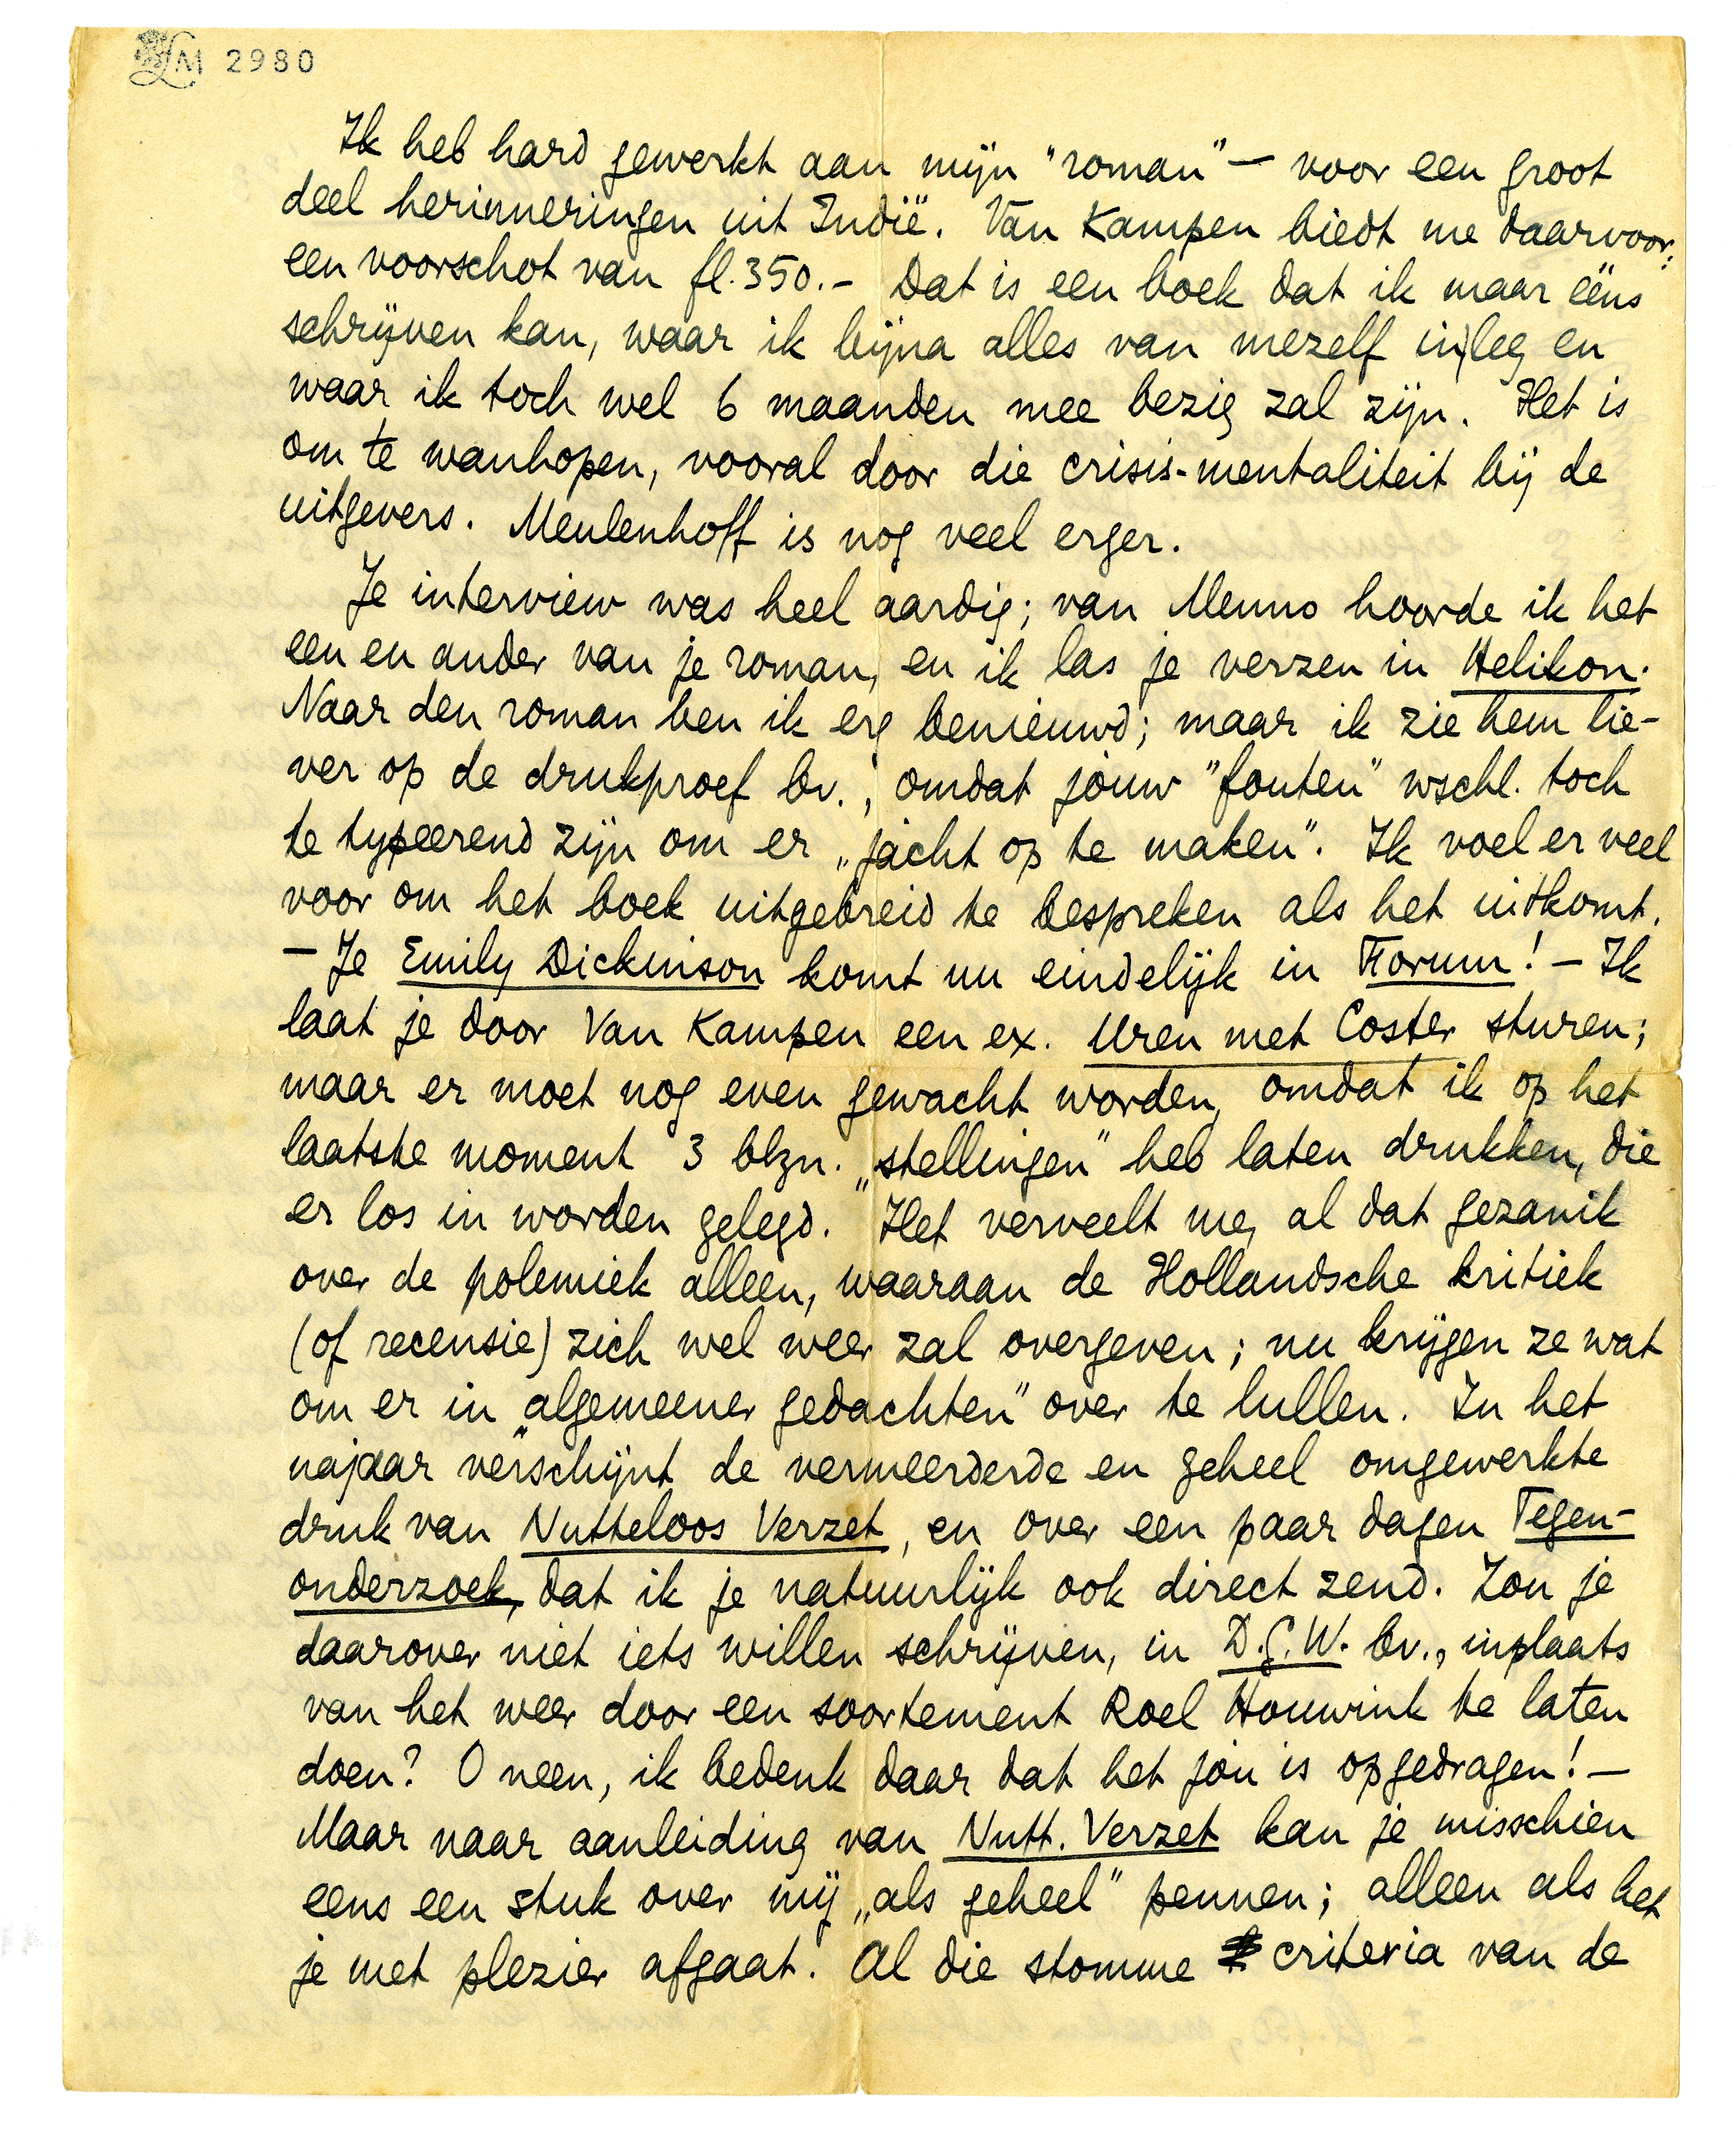 LM 2980
Ik heb hard gewerkt aan mijn "roman" — voor een groot
deel herinneringen uit Indië. Van Kampen biedt me daarvoor:
een voorschot van fl. 350.- Dat is een boek dat ik maar ééns
schrijven kan, waar ik bijna alles van mezelf in leg en
waar ik toch wel 6 maanden mee bezig zal zijn. Het is
om te wanhopen, vooral door die crisis-mentaliteit bij de
uitgevers. Meulenhoff is nog veel erger.
Je interview was heel aardig; van Menno hoorde ik het
een en ander van je roman, en ik las je verzen in Helikon.
Naar den roman ben ik erg benieuwd; maar ik zie hem lie-
ver op de drukproef bv., omdat jóuw "fouten" wschl. toch
te typeerend zijn om er „jacht op te maken". Ik voel er veel
voor om het boek uitgebreid te bespreken als het uitkomt.
— Je Emily Dickinson komt nu eindelijk in Forum! — Ik
laat je door Van Kampen een ex. Uren met Coster sturen;
maar er moet nog even gewacht worden, omdat ik op het
laatste moment 3 blzn. „stellingen" heb laten drukken, die
er los in worden gelegd. Het verveelt me, al dat gezanik
over de polemiek alleen, waaraan de Hollandsche kritiek
(of recensie) zich wel weer zal overgeven; nu krijgen ze wat
om er in „algemeener gedachten" over te lullen. In het
najaar verschijnt de vermeerderde en geheel omgewerkte
druk van Nutteloos Verzet, en over een paar dagen Tegen-
onderzoek, dat ik je natuurlijk ook direct zend. Zou je
daarover niet iets willen schrijven, in D.G.W. bv., inplaats
van het weer door een soortement Roel Houwink te laten
doen? O neen, ik bedenk daar dat het jóu is opgedragen! —
Maar naar aanleiding van Nutt. Verzet kan je misschien
eens een stuk over mij „als geheel" pennen; alleen als het
je met plezier afgaat. Al die stomme criteria van de